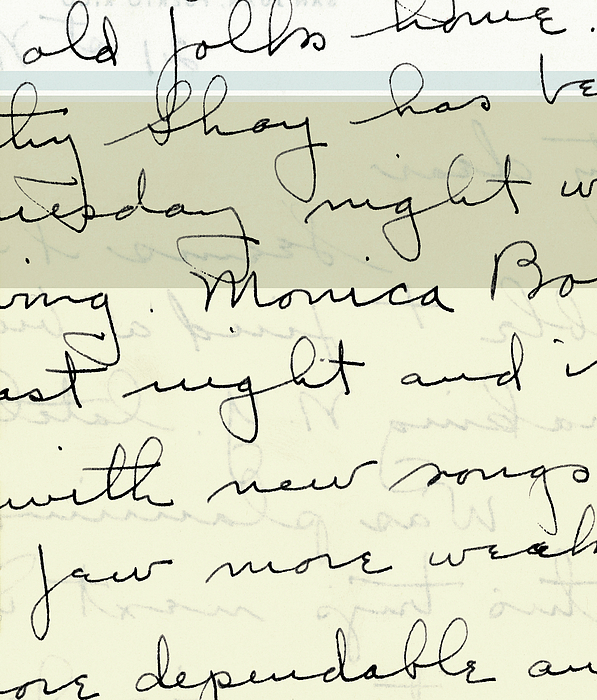 old folks home.
Shay has
night
Monica Bo
ast night and i
with new songs
few more weak
ore dependable an